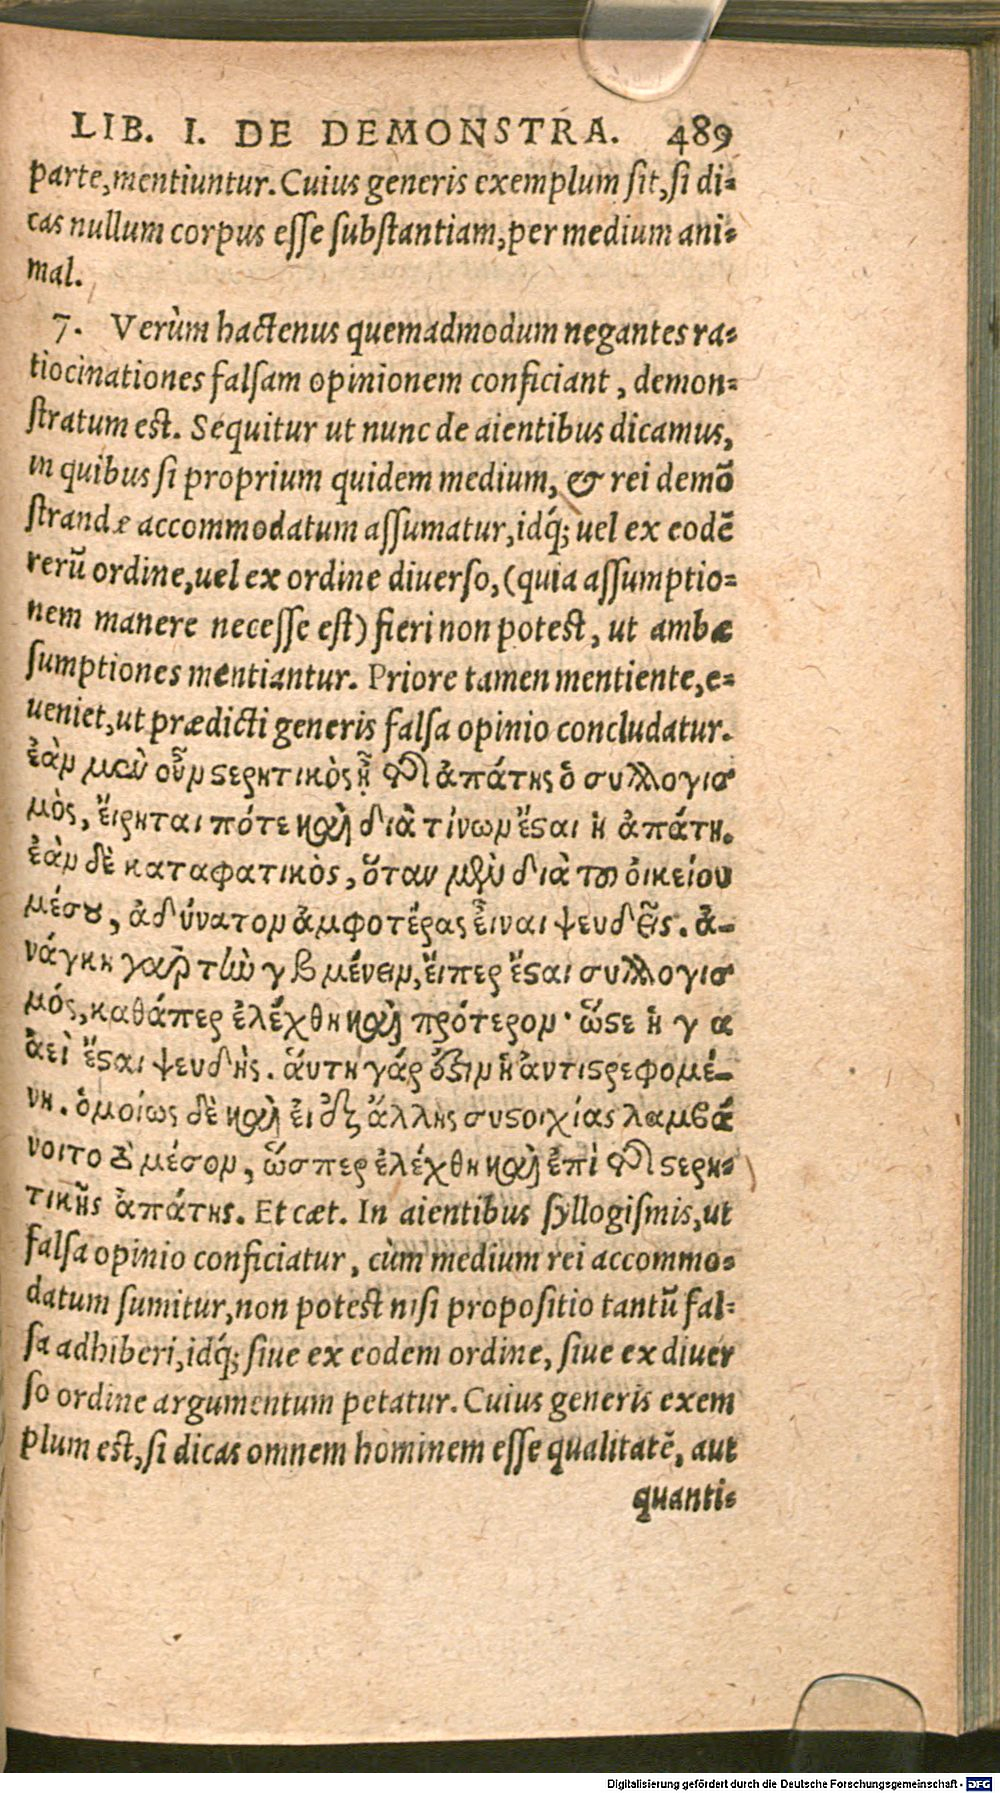 LIB. I. DE DEMONSTRA. 489
parte, mentiuntur. Cuius generis exemplum sit, si di-
cas nullum corpus esse substantiam, per medium ani-
mal.
7. Verùm hactenus quemadmodum negantes ra-
tiocinationes falsam opinionem conficiant, demon-
stratum est. Sequitur ut nunc de aientibus dicamus,
in quibus si proprium quidem medium, & rei demō
strandæ accommodatum assumatur, idq́; uel ex eodē
rerū ordine, uel ex ordine diuerso, (quia assumptio-
nem manere necesse est) fieri non potest, ut ambæ
sumptiones mentiantur. Priore tamen mentiente, e-
ueniet, ut prædicti generis falsa opinio concludatur.
ἐὰν μὲν οὖν ϛερητικὸς ᾖ τῆς ἀπάτης ὁ συλλογισ
μὸς, ἔιρηται πότε καὶ διὰ τίνων ἔϛαι ἡ ἀπάτη.
ἐὰν δὲ καταφατικὸς, ὅταν μὲν διὰ τοῦ ὀικείου
μέσου, ἀδύνατον ἀμφοτέρας εἶναι ψευδεῖς. ἀ-
νάγκη γὰρ τὴν γ β μένειν, ἔιπερ ἔϛαι συλλογισ
μός, καθάπερ ἐλέχθη καὶ πρότερον· ὥϛε ἡ γ α
ἀεὶ ἔϛαι ψευδής. ἅυτη γάρ ἐϛιν ἡ ἀντιϛρεφομέ-
νη. ὁμοίως δὲ καὶ εἰ ἐξ ἄλλης συϛοιχίας λαμβά
νοιτο τὸ μέσον, ὥσπερ ἐλέχθη καὶ ἐπὶ τῆς ϛερη-
τικῆς ἀπάτης. Et cæt. In aientibus syllogismis, ut
falsa opinio conficiatur, cùm medium rei accommo-
datum sumitur, non potest nisi propositio tantū fal-
sa adhiberi, idq́; siue ex eodem ordine, siue ex diuer
so ordine argumentum petatur. Cuius generis exem
plum est, si dicas omnem hominem esse qualitatē, aut
quanti-
Digitalisierung gefördert durch die Deutsche Forschungsgemeinschaft - DFG